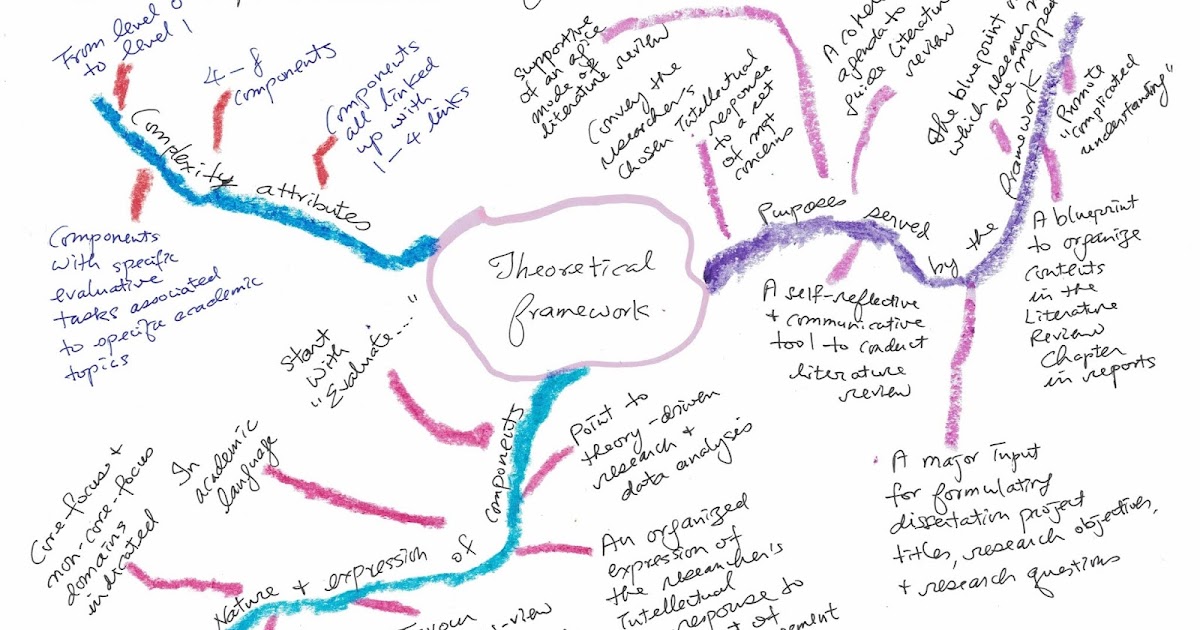 Theoretical
framework
Complexity attributes
From level 0
to level 1
4-8
components
Components
all linked
up with
1-4 links
Components
with specific
evaluative
tasks associated
to specific academic
topics
Purposes served by the framework
Supportive
of an agile
mode of
literature review
Convey the
researcher's
chosen Intellectual
response
to a set
of mgt
concerns
A
agenda to
guide literature
review
the blueprint
which research
are mapped
Promote
"complicated
understanding"
A self-reflective
+ communicative
tool to conduct
literature
review
A blueprint
to organize
contents
in the
Literature
Review
Chapter
in reports
A major input
for formulating
dissertation project
titles, research objectives,
+ research questions
Nature + expression of components
Start
with
"Evaluate..."
In
academic
language
Core-focus +
non-core-focus
domains
indicated
Point to
theory-driven
research +
data analysis
An organized
expression of
the researcher's
Intellectual
response to